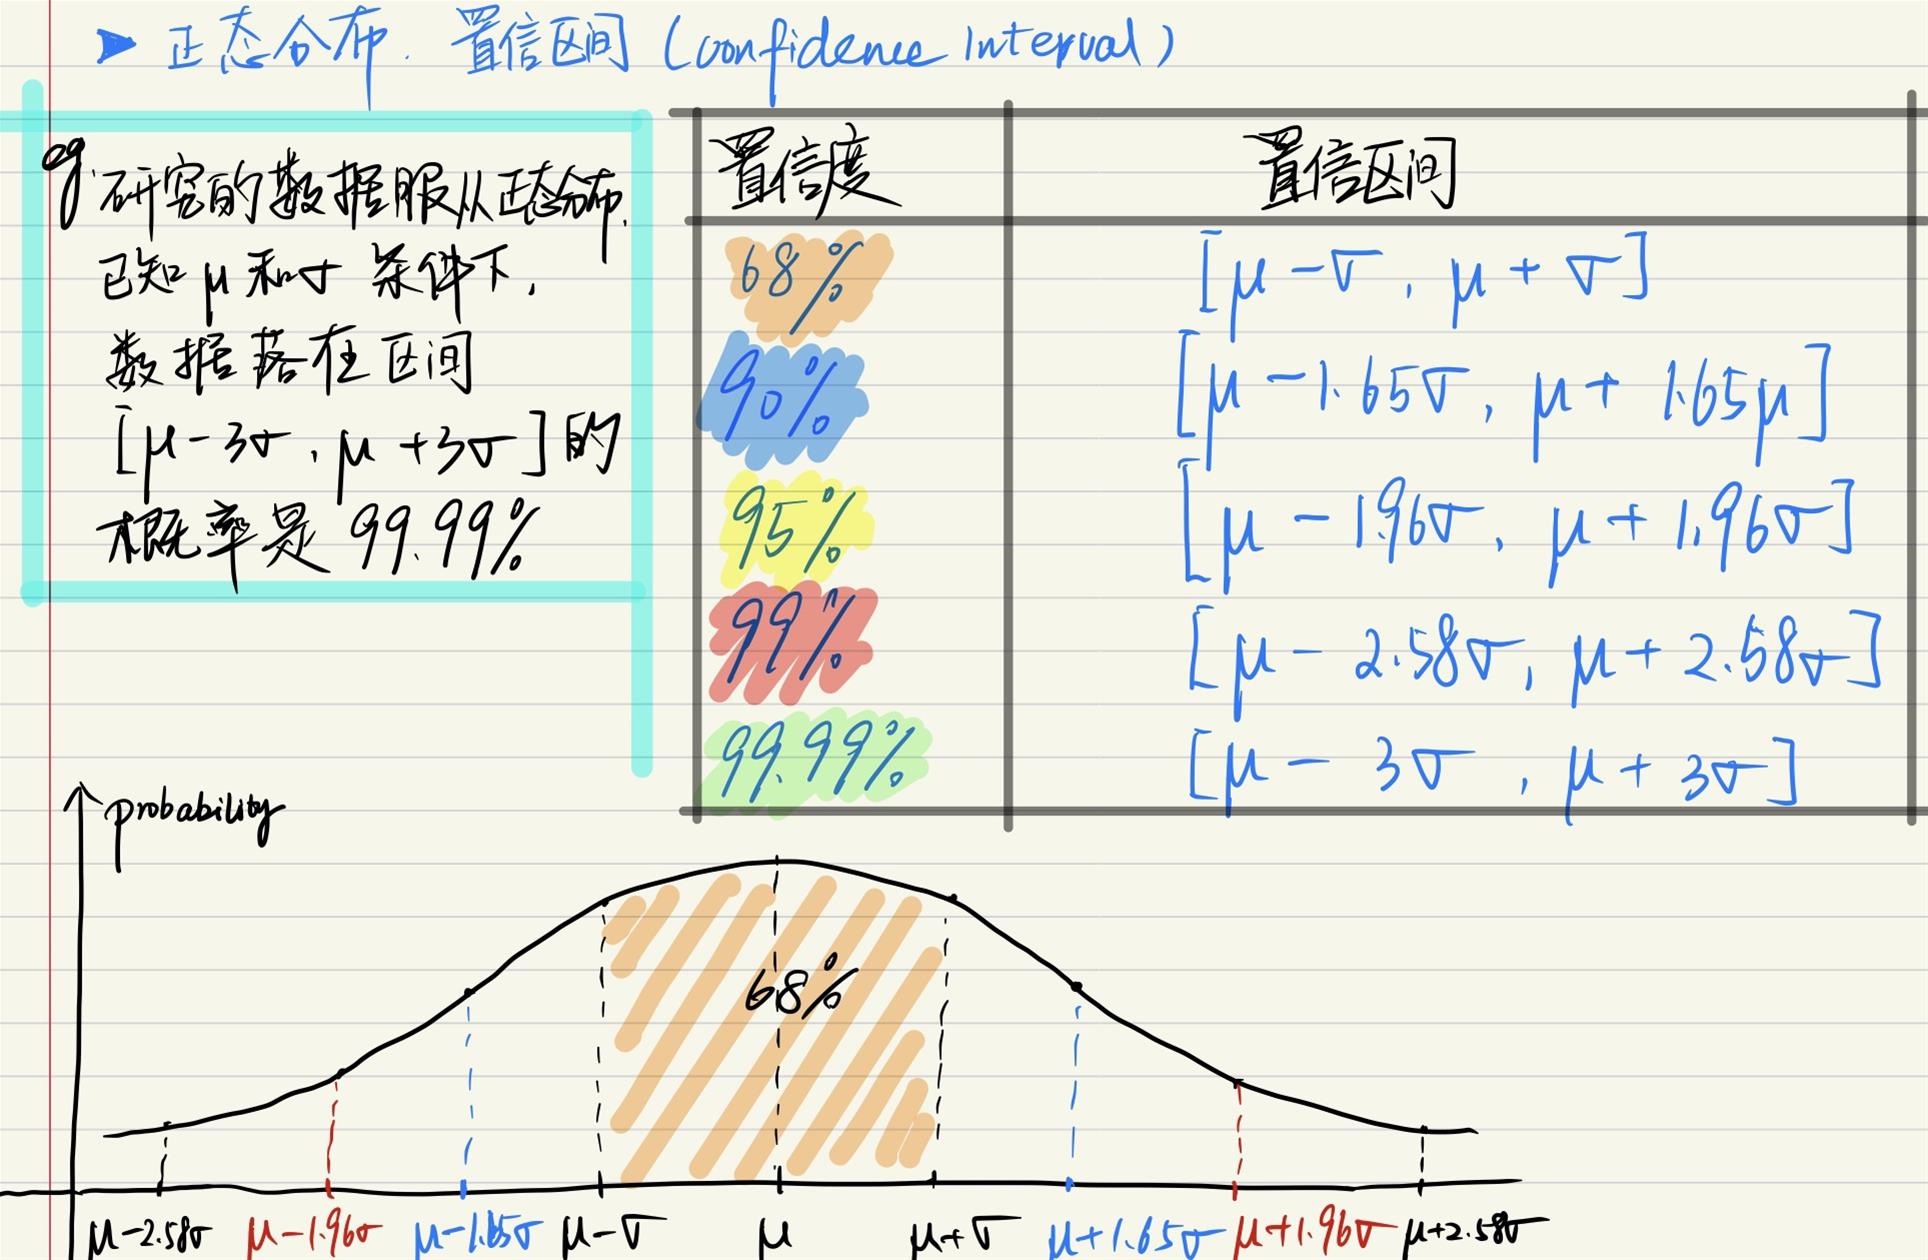 ▶ 正态分布. 置信区间 (confidence Interval)
eg. 研究的数据服从正态分布.
已知 μ 和 σ 条件下,
数据落在区间
[μ-3σ, μ+3σ] 的
概率是 99.99%
置信度 置信区间
68% [μ-σ, μ+σ]
90% [μ-1.65σ, μ+1.65μ]
95% [μ-1.96σ, μ+1.96σ]
99% [μ-2.58σ, μ+2.58σ]
99.99% [μ-3σ, μ+3σ]
probability
68%
μ-2.58σ μ-1.96σ μ-1.65σ μ-σ μ μ+σ μ+1.65σ μ+1.96σ μ+2.58σ